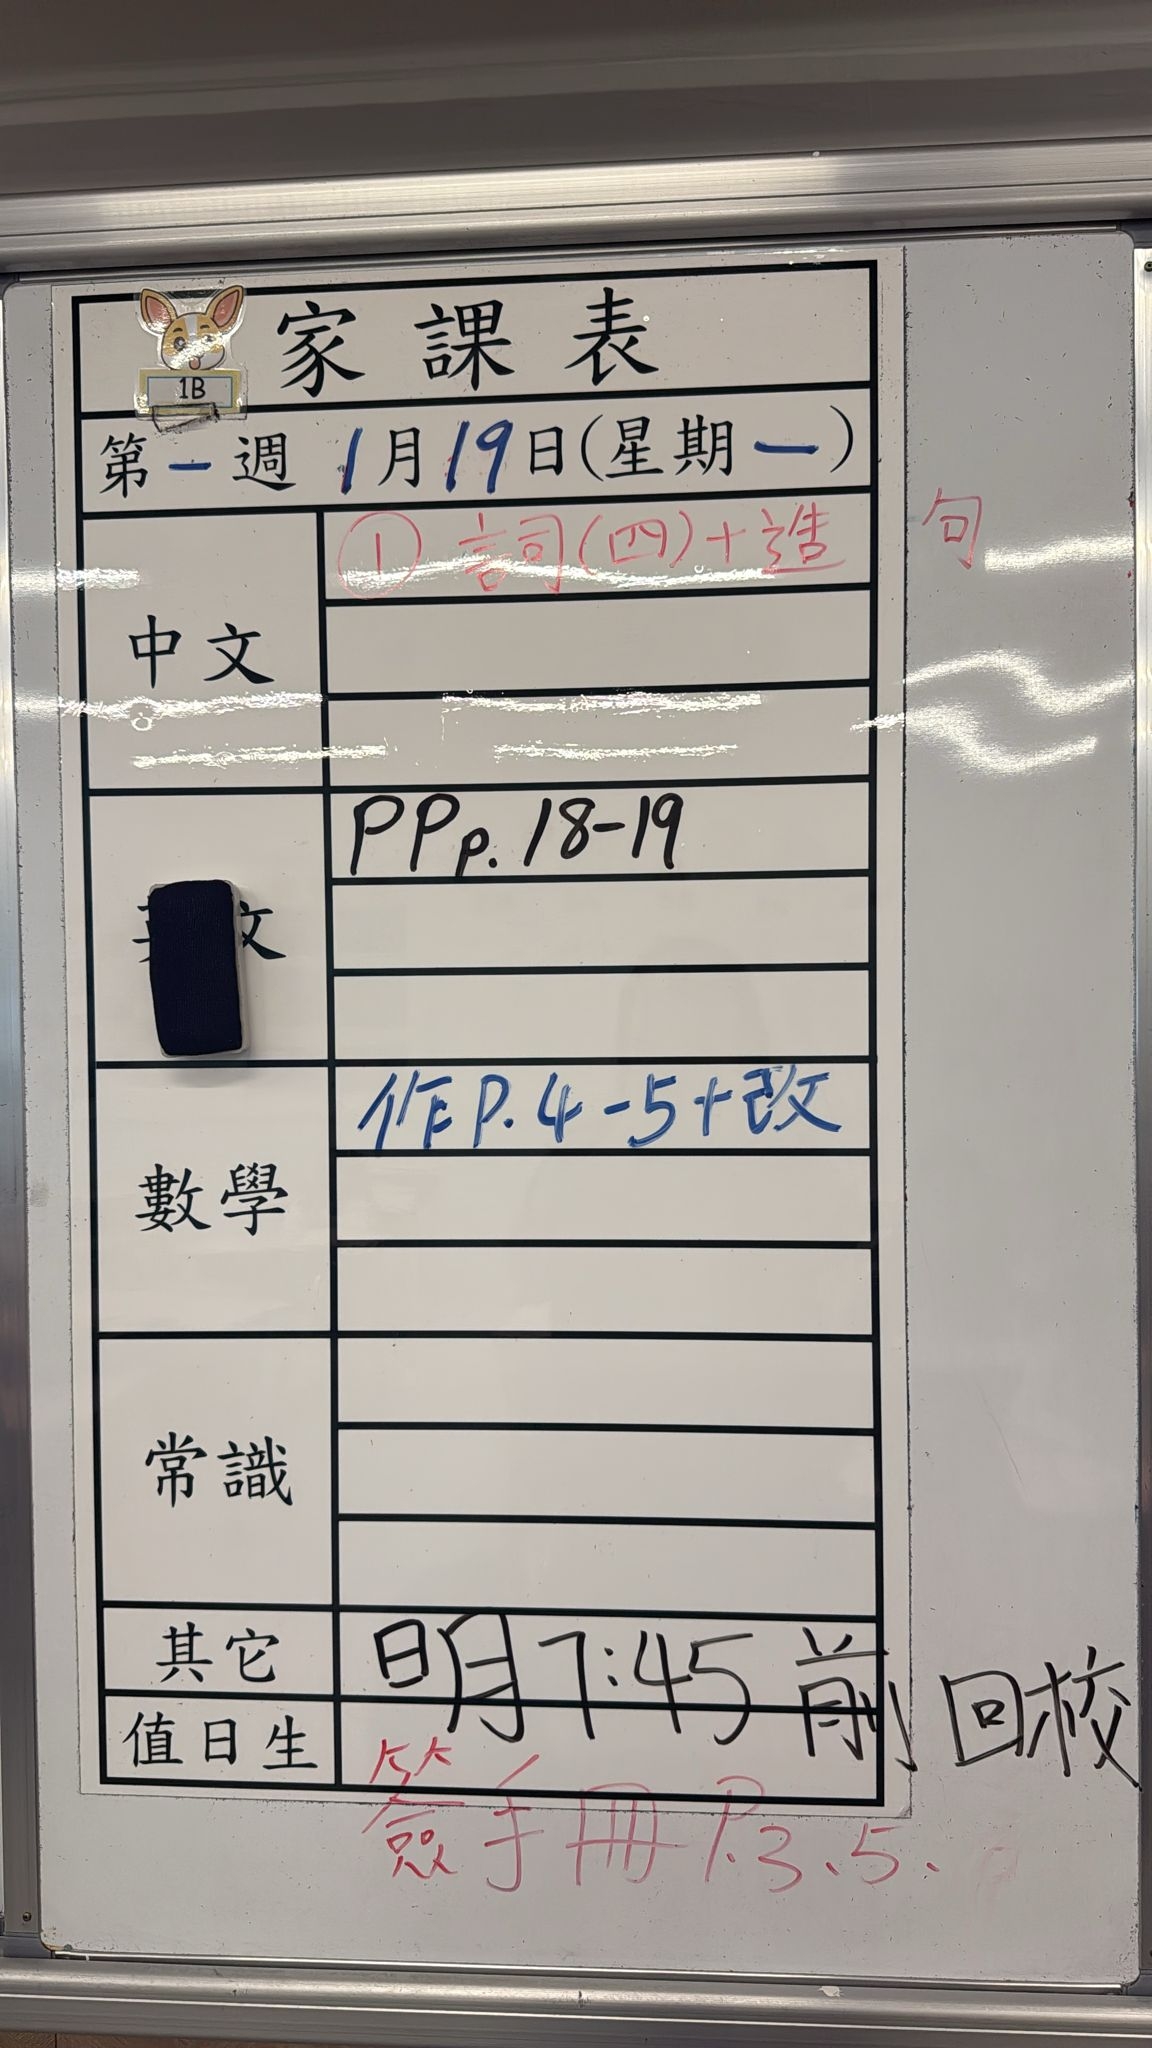 1B
家課表
第一週 1月19日(星期一)
中文
① 詞(四)+造句
英文
PP p.18-19
數學
作P.4-5+改
常識
其它
明7:45前回校
值日生
簽手冊 P.3、5、